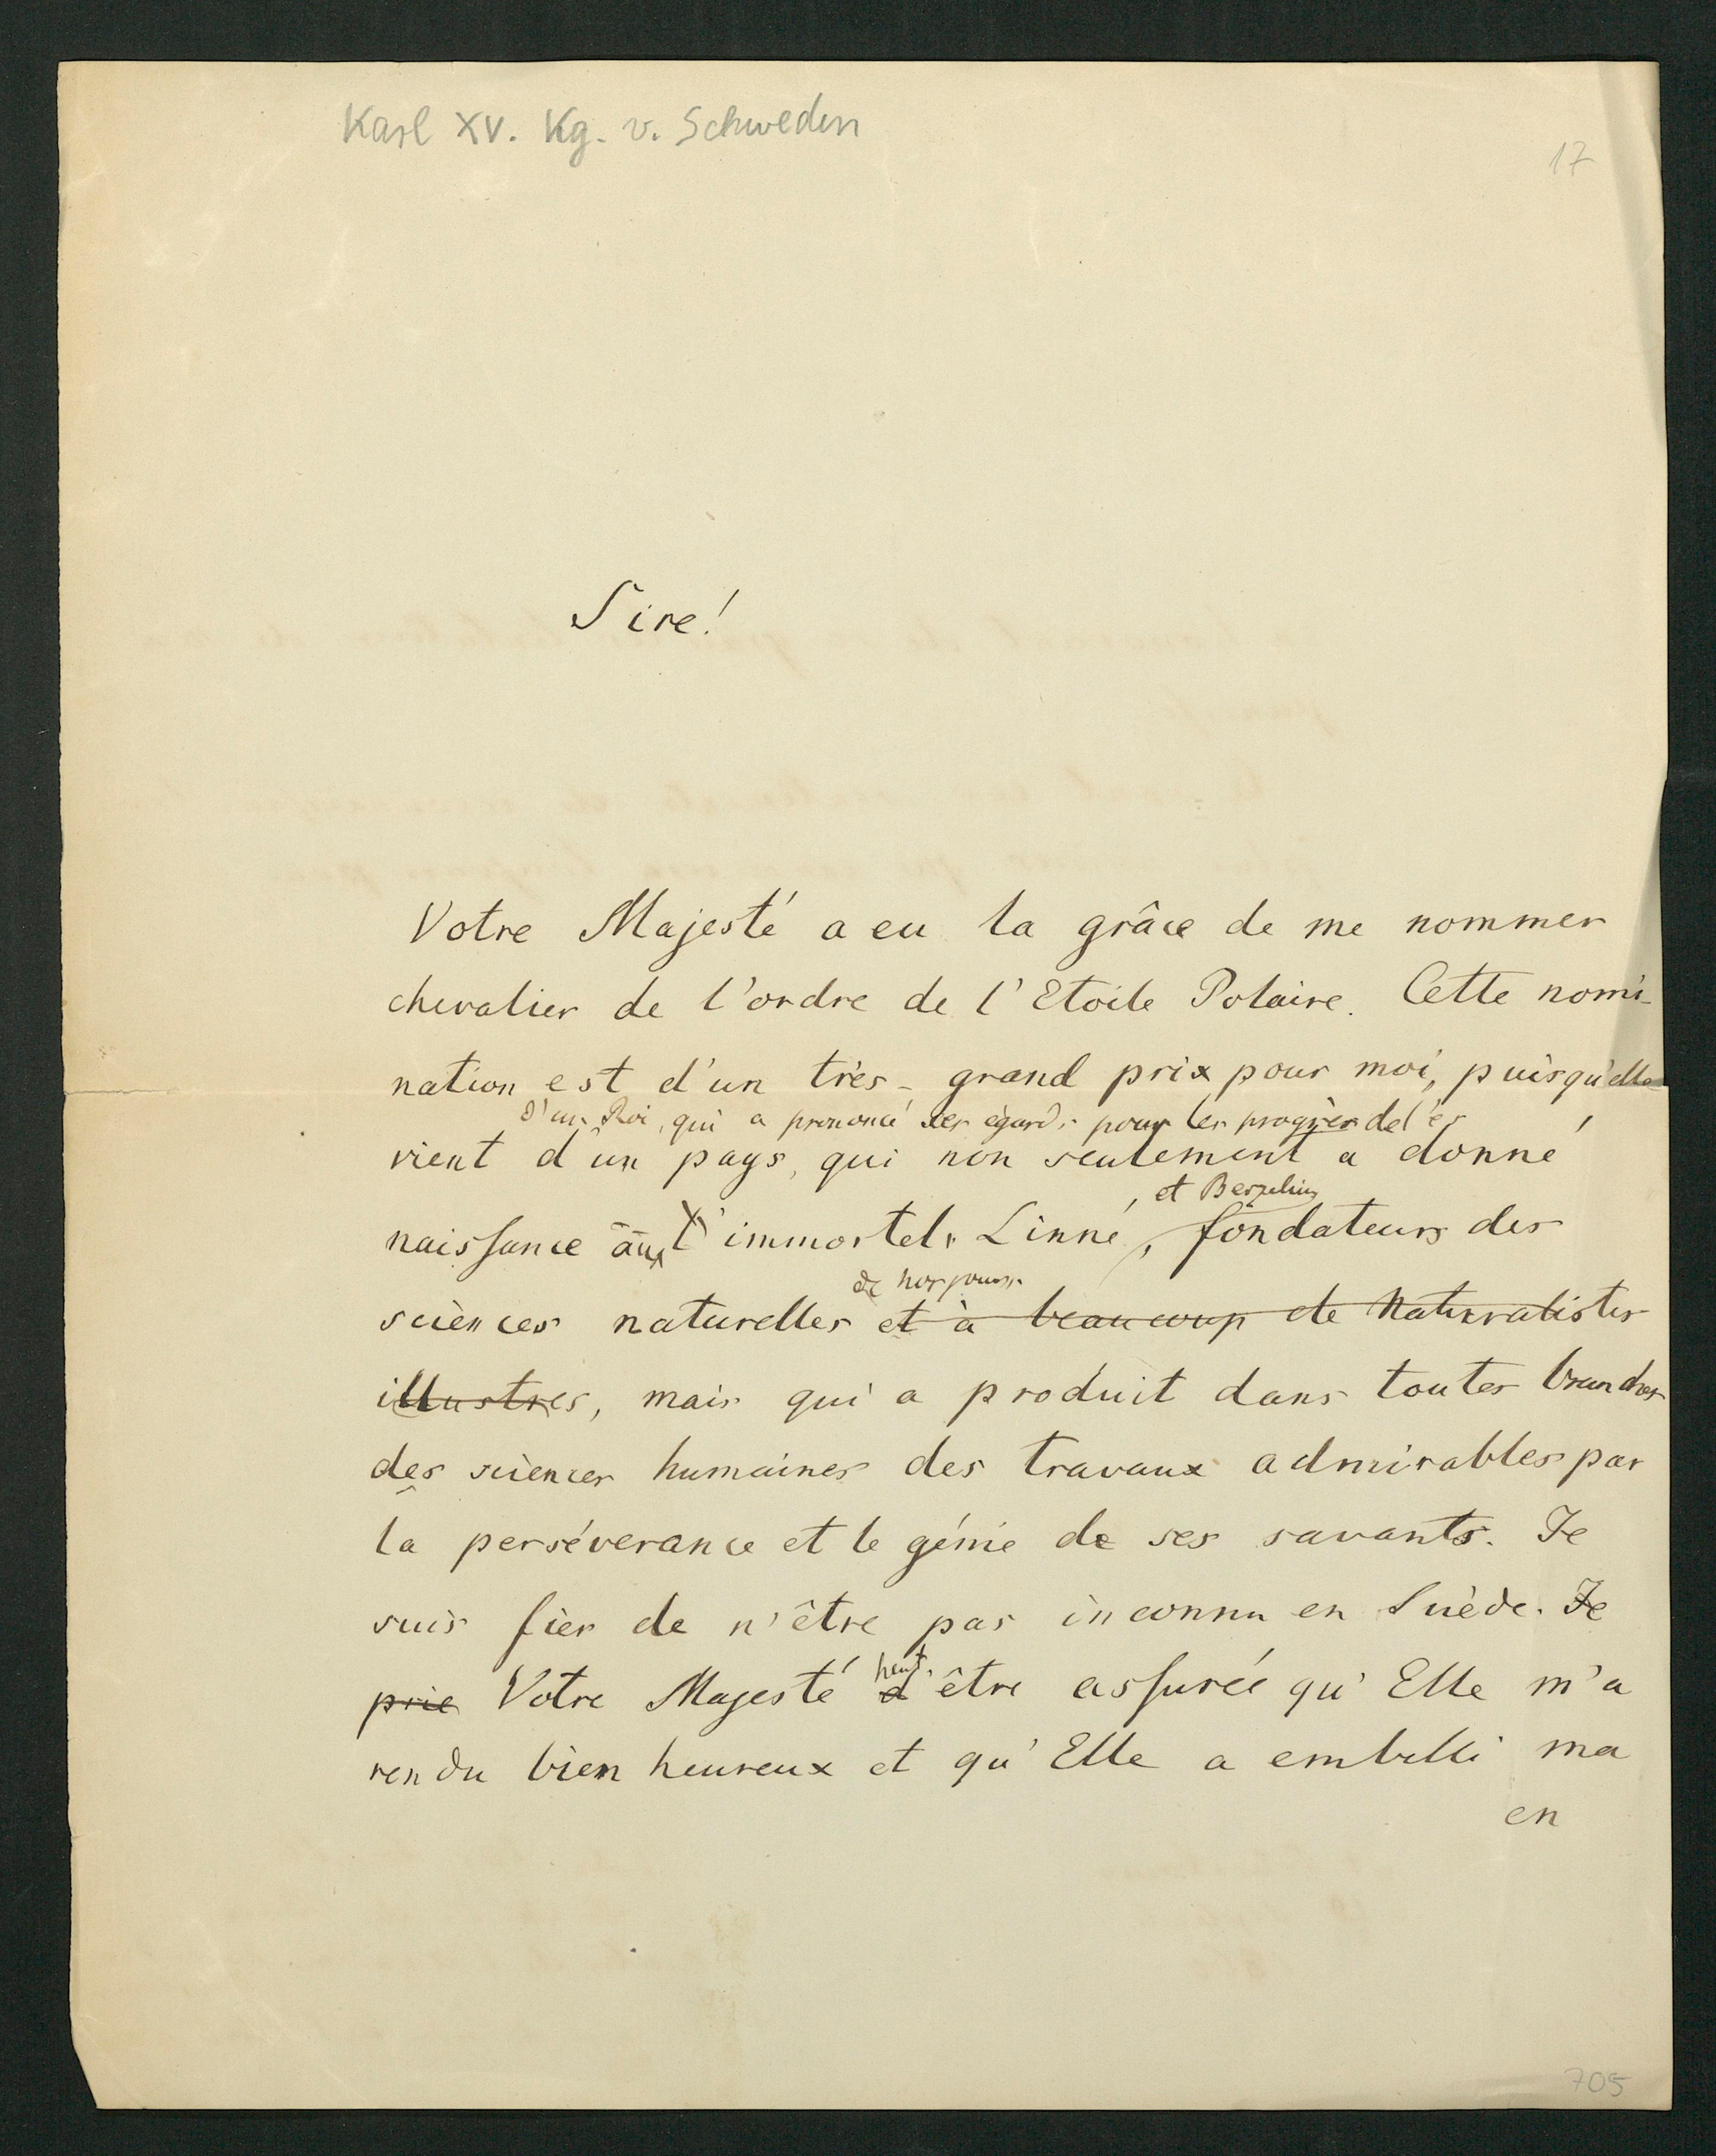 Karl XV. Kg. v. Schweden
17
Sire!
Votre Majesté a eu la grâce de me nommer
chevalier de l'ordre de l'Etoile Polaire. Cette nomi-
nation est d'un très-grand prix pour moi, puisqu'elle
d'un Roi, qui a prononcé ses égards pour les progrès de l'es
vient d'un pays, qui non seulement a donné
, et Berzelius
naissance aux l'immortels Linné, fondateurs des
de nos jours
sciences naturelles et à beaucoup de Naturalistes
illustres, mais qui a produit dans toutes branches
des sciences humaines des travaux admirables par
la persévérance et le génie de ses savants. Je
suis fier de n'être pas inconnu en Suède. Je
peut
prie Votre Majesté d'être assurée qu'Elle m'a
rendu bien heureux et qu'Elle a embelli ma
en
705